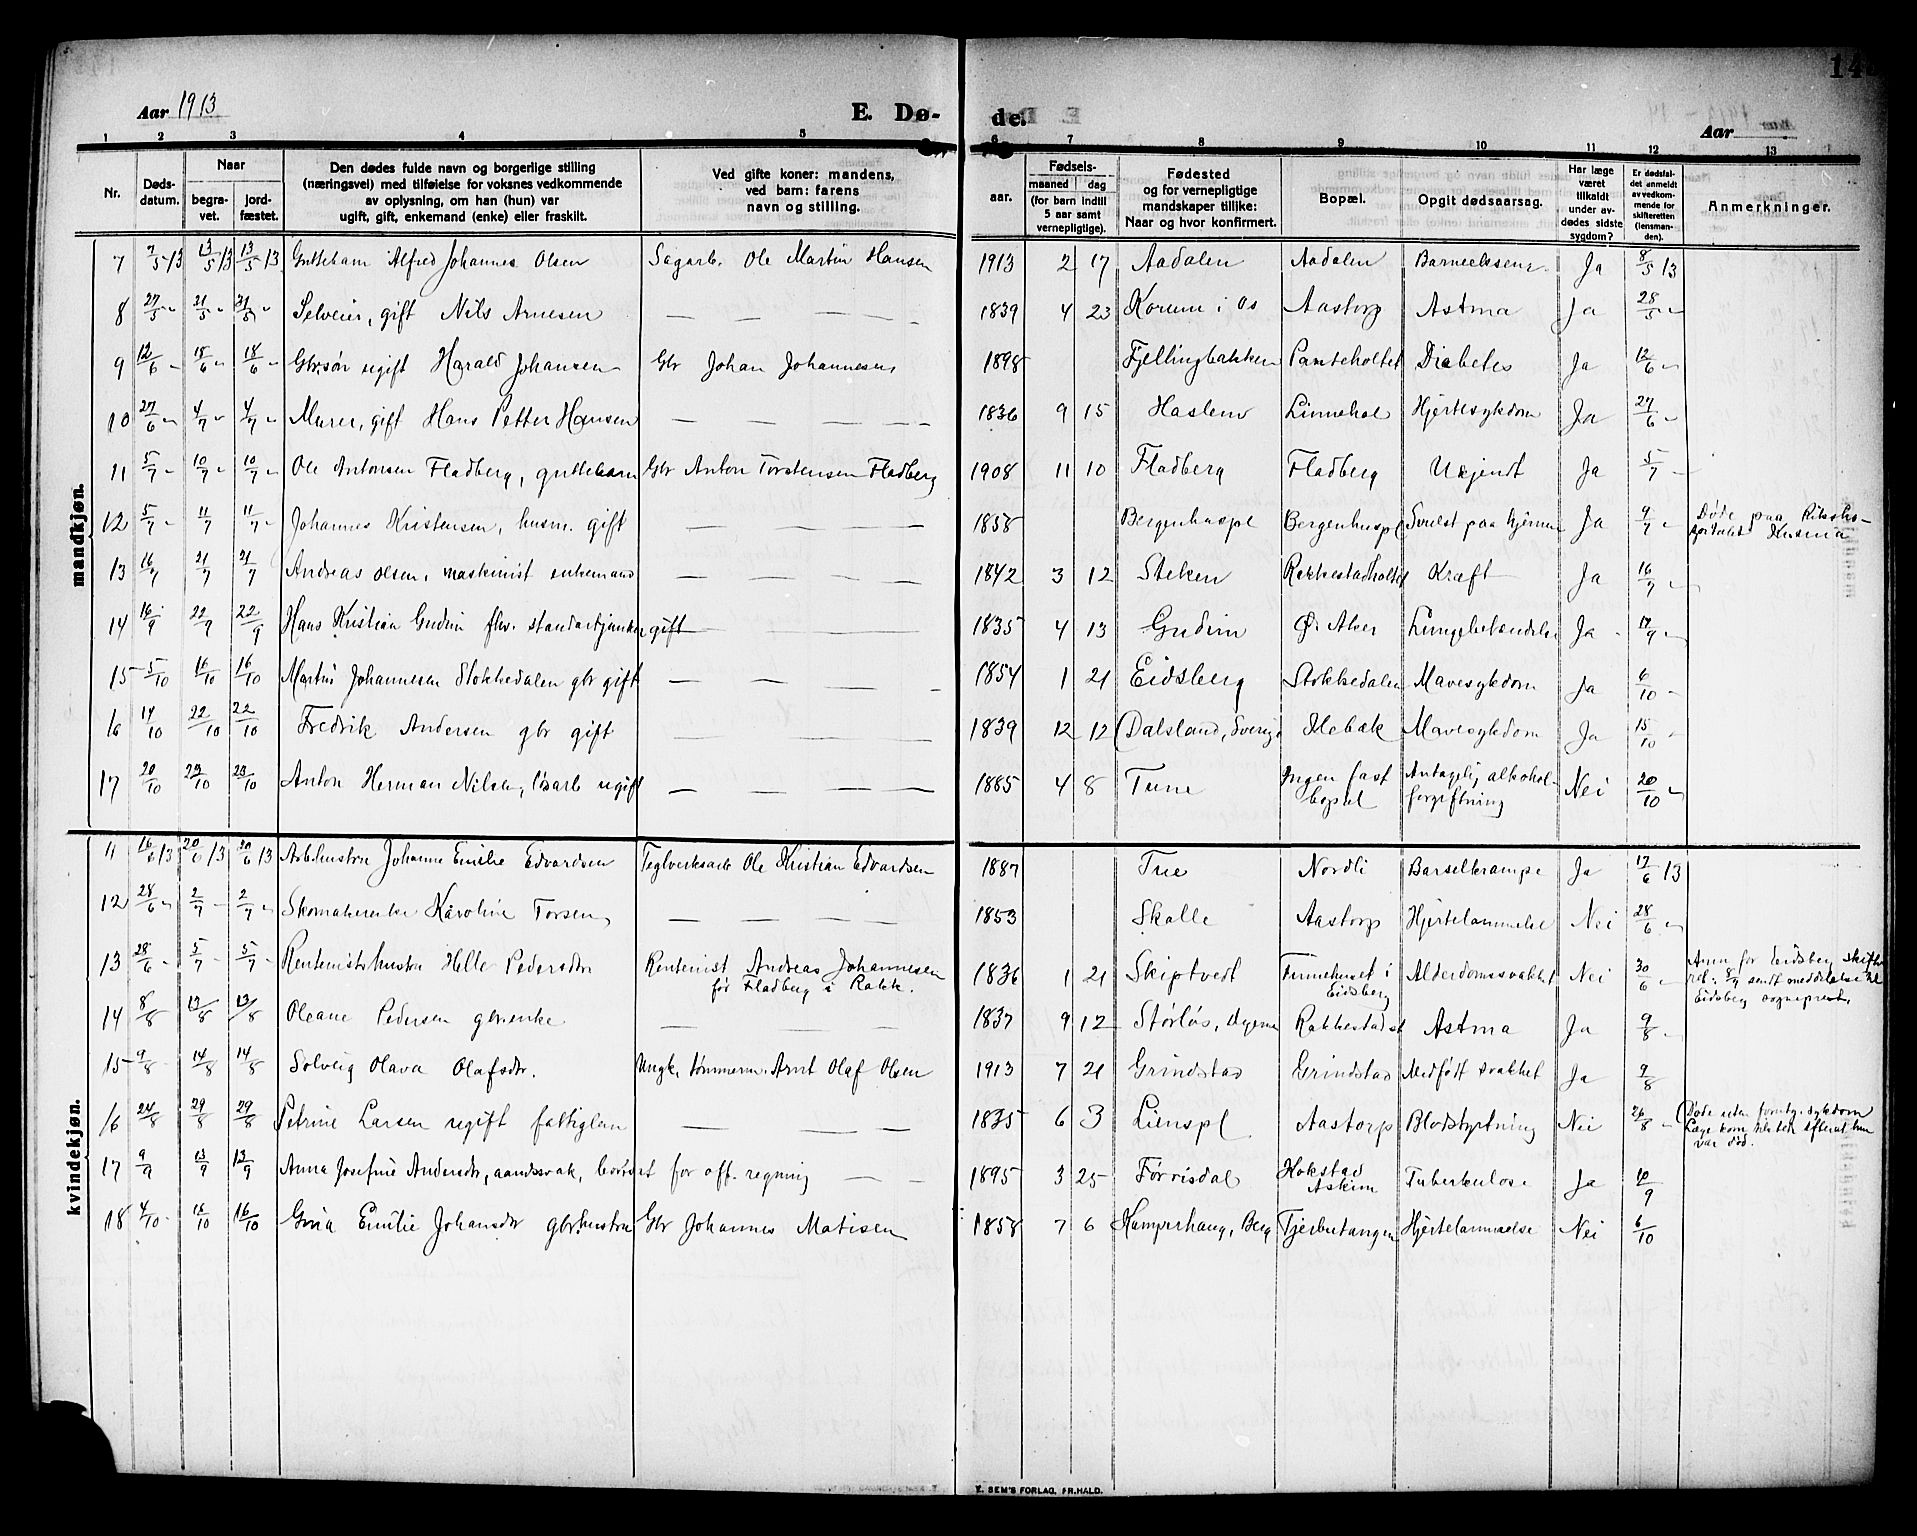 Aar 1913
E. Dø-
de.
14
Aar
1 2 3 4 5 6 7 8 9 10 11 12 13
Nr.
Døds-
datum.
Naar
begra-
vet.
jord-
fæstet.
Den dødes fulde navn og borgerlige stilling
(næringsvei) med tilføielse for voksnes vedkommende
av oplysning, om han (hun) var
ugift, gift, enkemand (enke) eller fraskilt.
Ved gifte koner: mandens,
ved barn: farens
navn og stilling.
Fødsels-
aar.
maaned
dag
(for barn indtil
5 aar samt
vernepligtige).
Fødested
og for vernepligtige
mandskaper tillike:
Naar og hvor konfirmert.
Bopæl.
Opgit dødsaarsag.
Har læge
været
tilkaldt
under av-
dødes sidste
sygdom?
Er dødsfal-
det anmeldt
av vedkom-
mende for
skifteretten
(lensman-
den).
Anmerkninger.
mandkjøn.
7 7/5 13 13/5 13 13/5 13 Guttebarn Alfred Johannes Olsen Sagarb. Ole Martin Hansen 1913 2 17 Aadalen Aadalen Ja 8/5 13
8 27/5 " 31/5 " 31/5 " Selveier, gift Nils Arnesen — — — — 1839 4 23 Korum i Os Aastorp Astma Ja 28/5 "
9 12/6 " 18/6 " 18/6 " Gbr.søn ugift Harald Johansen Gbr Johan Johannesen 1898 Fjellingbakken Panteholtet Diabetes Ja 12/6 "
10 27/6 " 4/7 " 4/7 " Murer, gift Hans Petter Hansen — — — — 1836 9 15 Haslem Linnehol Hjertesykdom Ja 27/6 "
11 5/7 " 10/7 " 10/7 " Ole Antonsen Fladberg, guttebarn Gbr Anton Torstensen Fladberg 1908 11 10 Fladberg Fladberg Ukjendt Ja 5/7 "
12 5/7 " 11/7 11/7 " Johannes Kristensen, husm. gift — — — — 1858 Bergenhuspl Bergenhuspl Svulst paa hjernen Ja 9/7 " Døde paa Riksho-
spitalet Kristiania
13 16/7 21/7 21/7 Andreas Olsen, maskinist enkemand — — — — 1842 3 12 Steken Rakkestadholtet Kræft Ja 16/7 "
14 16/9 22/9 22/9 Hans Kristian Gudim fhv. standartjunker gift — — — 1835 4 13 Gudim Ø. Aker Lungebetændelse Ja 17/9 "
15 5/10 16/10 16/10 Martin Johannesen Stokkedalen gbr gift — — — — 1854 1 21 Eidsberg Stokkedalen Mavesykdom Ja 6/10 "
16 14/10 22/10 22/10 Fredrik Andersen gbr gift — — — — 1839 12 12 Dalsland, Sverige Holebæk Mavesykdom Ja 15/10 "
17 20/10 23/10 23/10 Anton Herman Nilsen, løsarb ugift — — — — 1885 4 8 Tune Ingen fast
bopæl Antagelig alkohol-
forgiftning Nei 20/10 "
kvindekjøn.
11 16/6 13 20/6 13 20/6 13 Arb.hustru Johanne Emilie Edvardsen Teglverksarb Ole Kristian Edvardsen 1887 Tue Nordli Barselkrampe Ja 17/6 13
12 28/6 " 2/7 " 2/7 " Skomakerenke Karoline Torsen — — — — 1853 Skalle Aastorp Hjertelammelse Nei 28/6 "
13 28/6 " 5/7 " 5/7 " Rentenistshustru Helle Pedersdtr Rentenist Andreas Johannesen
før Fladberg i Rakk. 1836 1 21 Skiptvedt Finnehuset i
Eidsberg Alderdomssvakhet Nei 30/6 " Anm for Eidsberg skifte
ret: 8/7 sendt meddelelse til
Eidsberg sogneprest.
14 8/8 13/8 13/8 Oleane Pedersen gbr.enke — — — 1837 9 12 Størløs, Degernes Rakkestadst Astma Ja 9/8 "
15 9/8 14/8 14/8 Solveig Olava Olafsdtr. Ungk. tømmerm. Arnt Olaf Olsen 1913 7 21 Grindstad Grindstad Medfødt svakhet Ja 9/8
16 24/8 29/8 29/8 Petrine Larsen ugift fattiglem — — — — 1835 6 3 Lienspl Aastorp Blodstyrtning Nei 26/8 " Døde uten forutg. sykdom
Læge kom like efter at hun
var død.
17 9/9 13/9 13/9 Anna Josefine Andersdtr, aandssvak, bortsat for off. regning — — 1895 3 25 Førrisdal Hokstad
Askim Tuberkulose Ja 10/9
18 4/10 16/10 16/10 Gina Emilie Johansdtr gbr.hustru Gbr Johannes Matisen 1858 7 6 Kamperhaug, Berg Tjerbutangen Hjertelammelse Nei 6/10
E. SEM'S FORLAG, FR.HALD.